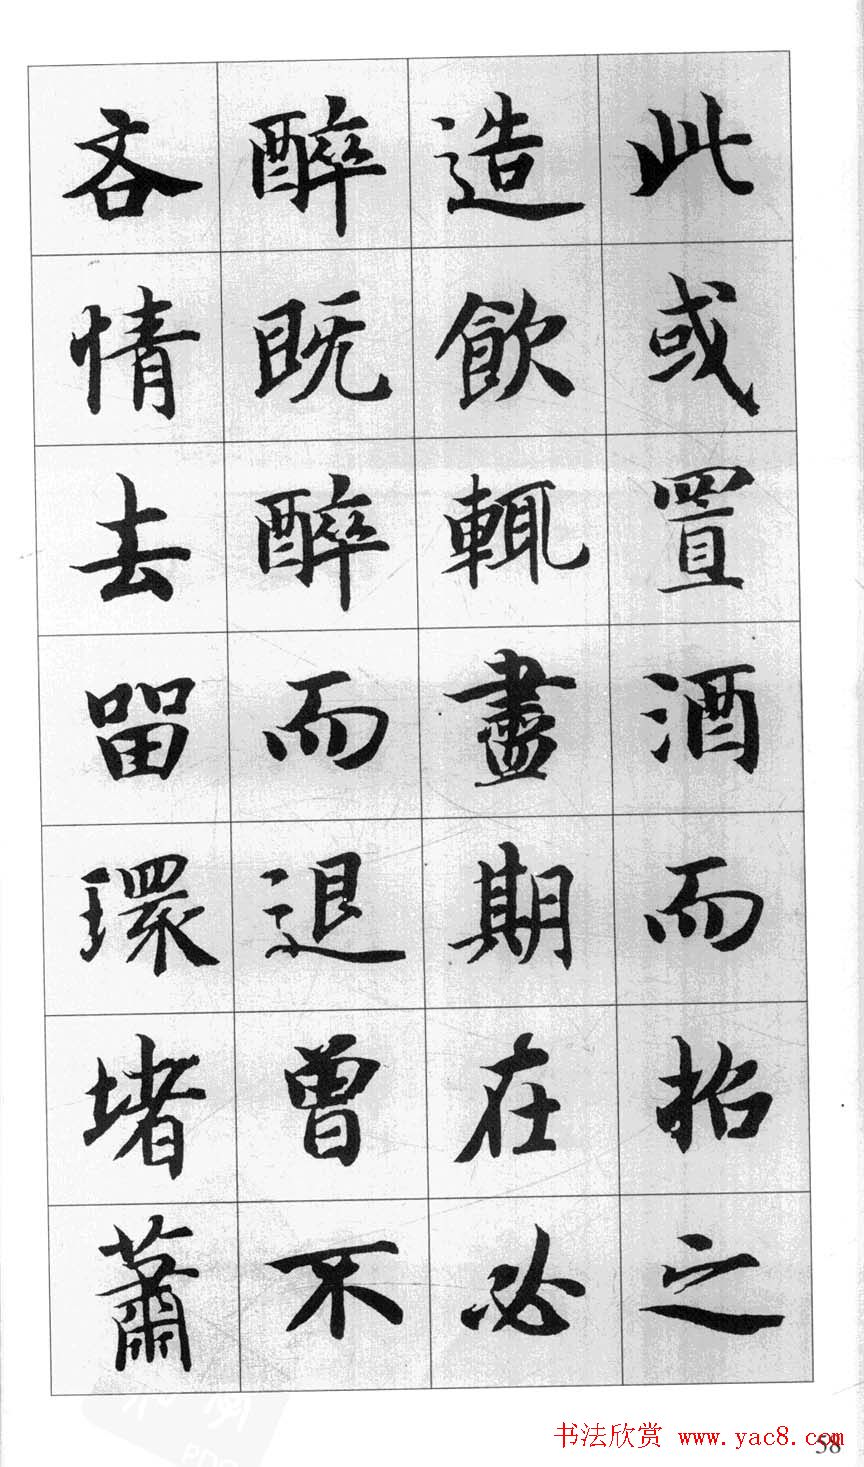 此或置酒而招之
造飲輒盡期在必
醉既醉而退曾不
吝情去留環堵蕭
书法欣赏 www.yac8.com
58